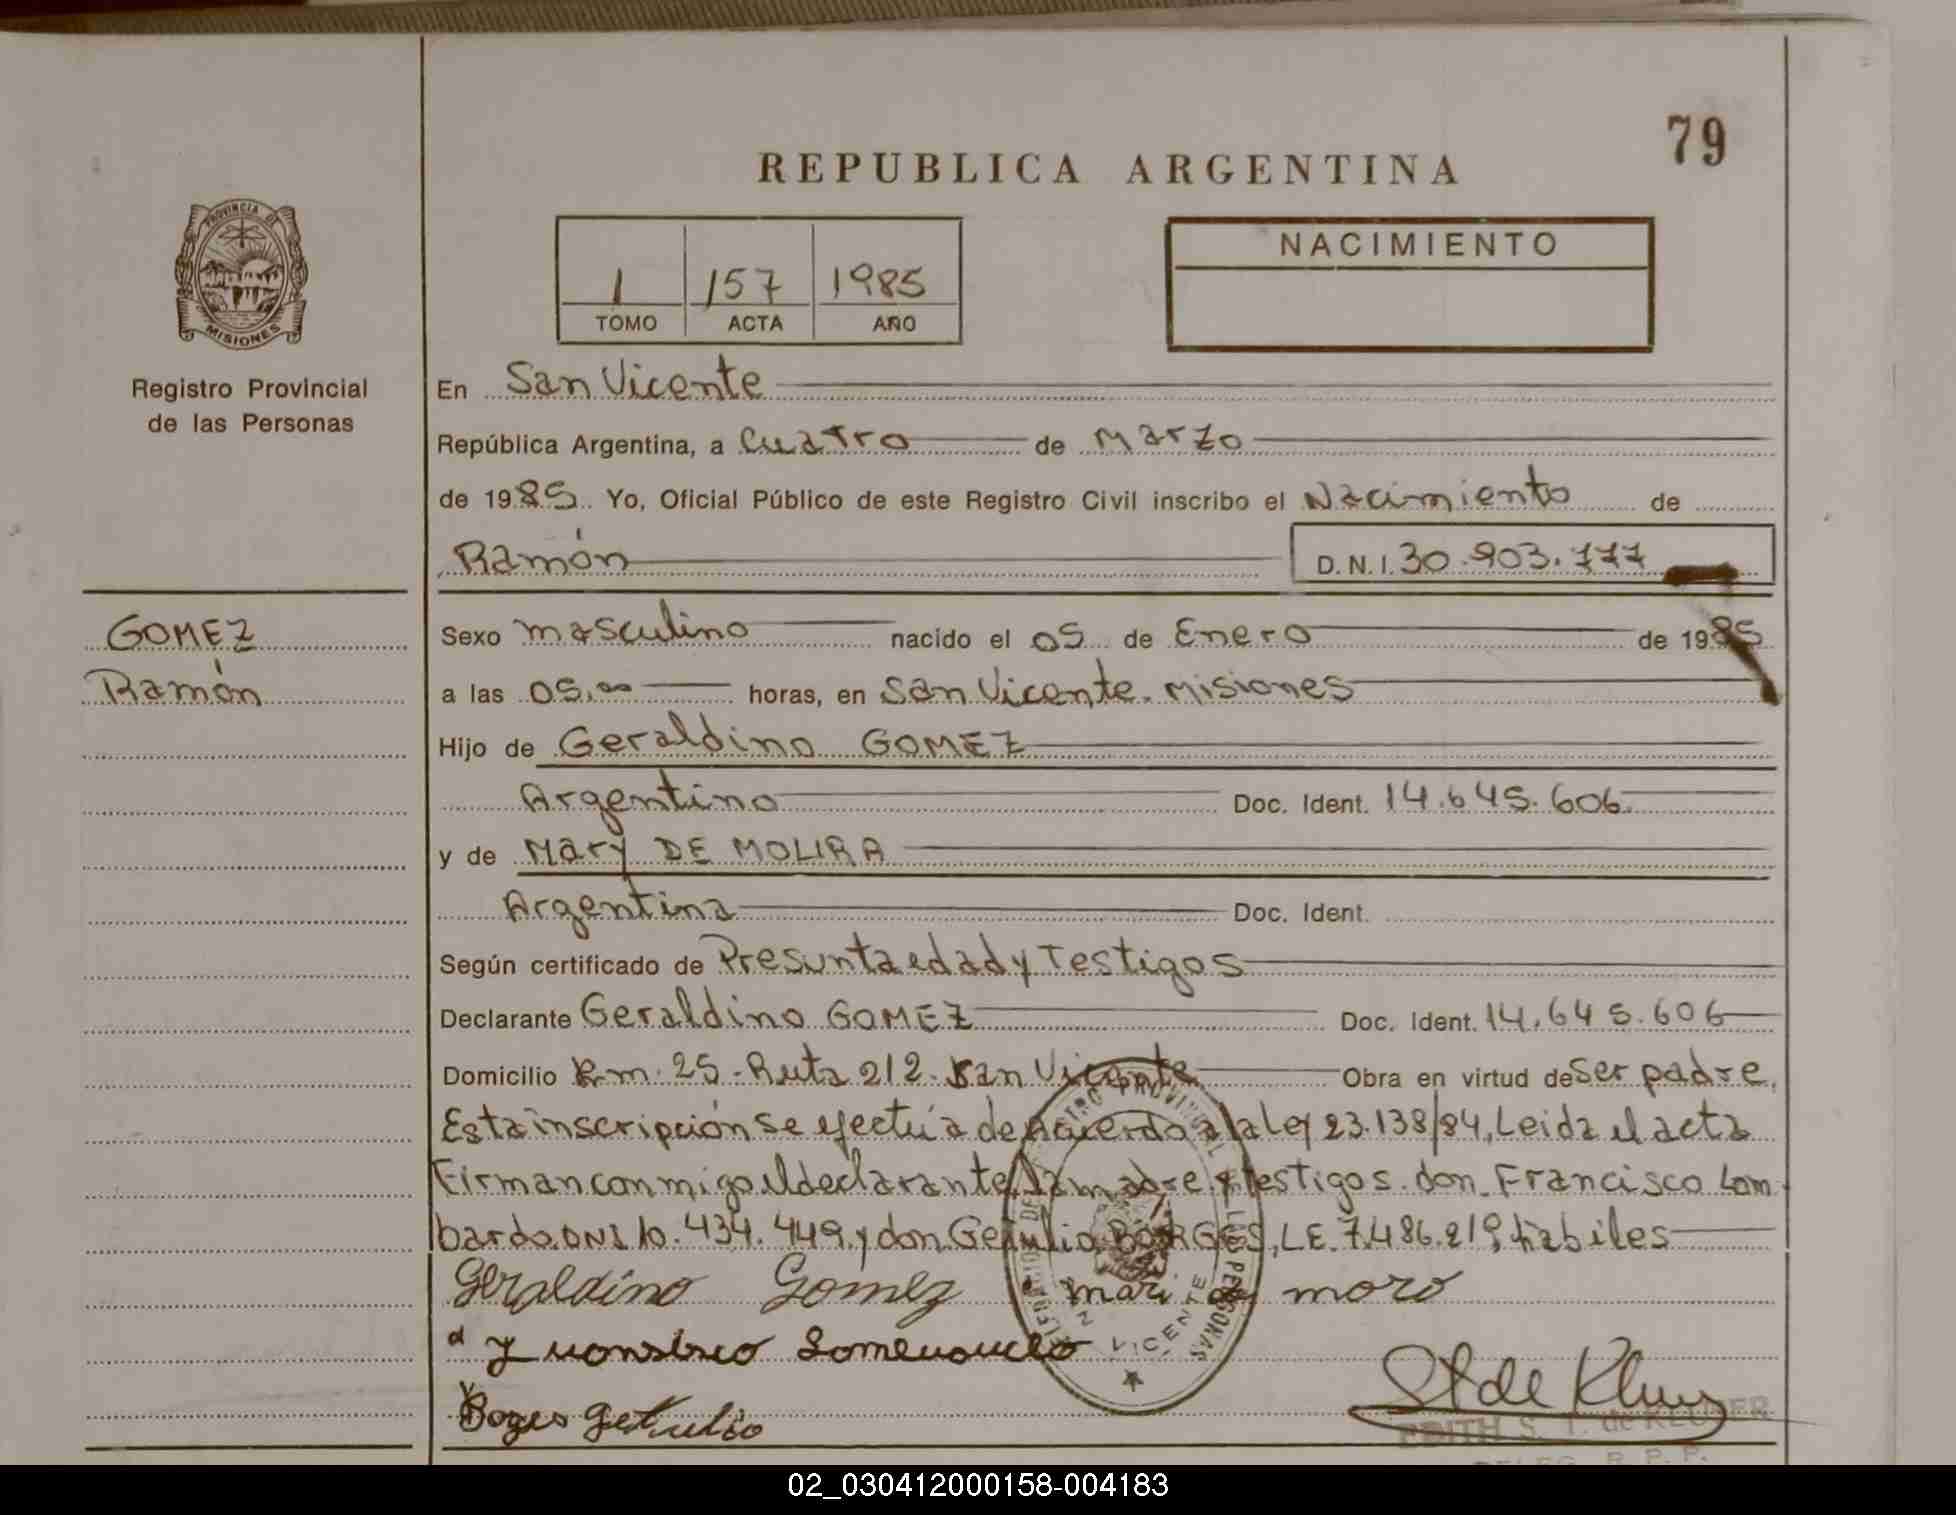 79
REPUBLICA ARGENTINA
PROVINCIA DE
MISIONES
Registro Provincial
de las Personas
1 157 1985
TOMO ACTA AÑO
NACIMIENTO
En San Vicente
República Argentina, a Cuatro de Marzo
de 1985. Yo, Oficial Público de este Registro Civil inscribo el Nacimiento de
Ramón D.N.I. 30.903.777
GOMEZ
Ramón
Sexo masculino nacido el 05 de Enero de 1985
a las 05,00 horas, en San Vicente. Misiones
Hijo de Geraldino GOMEZ
Argentino Doc. Ident. 14.645.606.
y de Mary DE MOURA
Argentina Doc. Ident.
Según certificado de Presunta edad y Testigos
Declarante Geraldino GOMEZ Doc. Ident. 14.645.606
Domicilio Km. 25 - Ruta 212. San Vicente Obra en virtud de ser padre.
Esta inscripción se efectúa de acuerdo a la Ley 23.138/84, Leida el acta
Firman conmigo el declarante, la madre y testigos don Francisco Lom
bardo, DNI 10.434.449 y don Getulio BORGES, L.E. 7.486.219, hábiles
Geraldino Gomez mari de moro
Borges Getulio
REGISTRO PROVINCIAL DE LAS PERSONAS
SAN VICENTE
EDITH S. T. de KLUSER
DELEG. R. P. P.
02_030412000158-004183